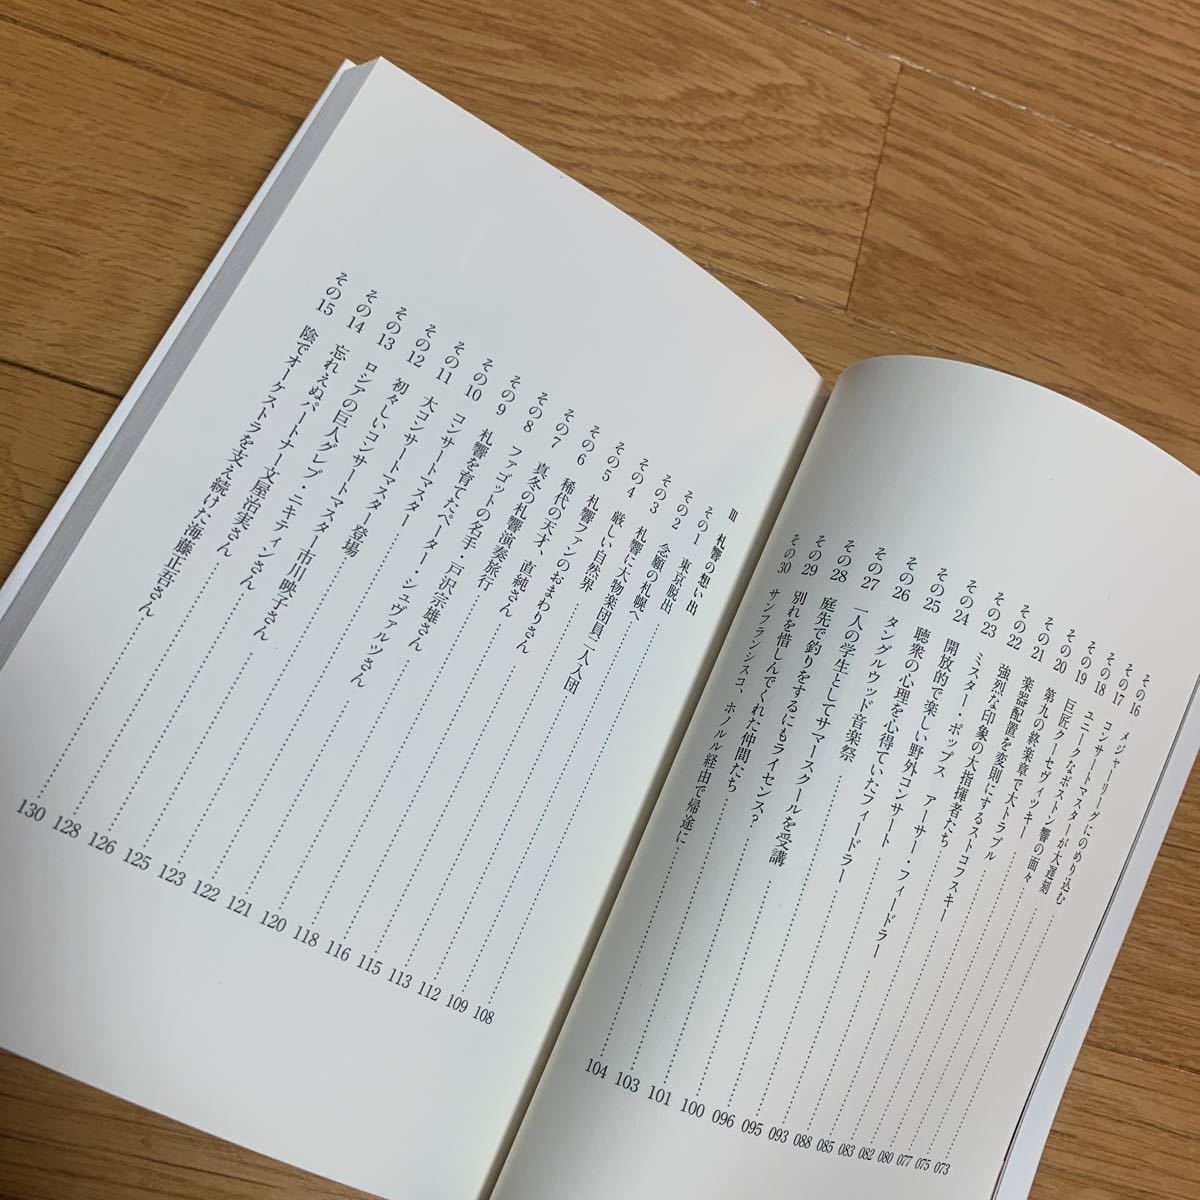 その16 メジャーリーグにのめり込む 073
その17 コンサートマスターが大遅刻 075
その18 ユニークなボストン響の面々 077
その19 巨匠クーセヴィツキー 080
その20 第九の終楽章で大トラブル 082
その21 楽器配置を変則にするストコフスキー 083
その22 強烈な印象の大指揮者たち 085
その23 ミスター・ポップス アーサー・フィードラー 088
その24 開放的で楽しい野外コンサート 093
その25 聴衆の心理を心得ていたフィードラー 095
その26 タングルウッド音楽祭 096
その27 一人の学生としてサマースクールを受講 100
その28 庭先で釣りをするにもライセンス? 101
その29 別れを惜しんでくれた仲間たち 103
その30 サンフランシスコ、ホノルル経由で帰途に 104
Ⅲ 札響の想い出
その1 東京脱出 108
その2 念願の札幌へ 109
その3 札響に大物楽団員二人入団 112
その4 厳しい自然界 113
その5 札響ファンのおまわりさん 115
その6 稀代の天才、直純さん 116
その7 真冬の札響演奏旅行 118
その8 ファゴットの名手・戸沢宗雄さん 120
その9 札響を育てたペーター・シュヴァルツさん 121
その10 コンサートマスター 122
その11 大コンサートマスター 123
その12 初々しいコンサートマスター 125
その13 ロシアの巨人グレブ・ニキティンさん 126
その14 忘れえぬパートナー文屋治実さん 128
その15 陰でオーケストラを支え続けた海藤正吾さん 130